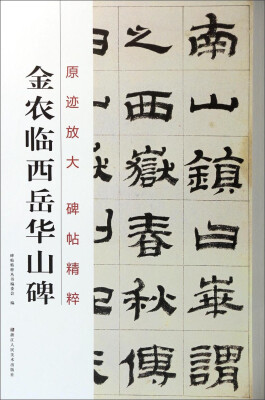 南山鎮曰華謂
之西嶽春秋傳
原迹放大 碑帖精粹
金农临西岳华山碑
浙江人民美术出版社